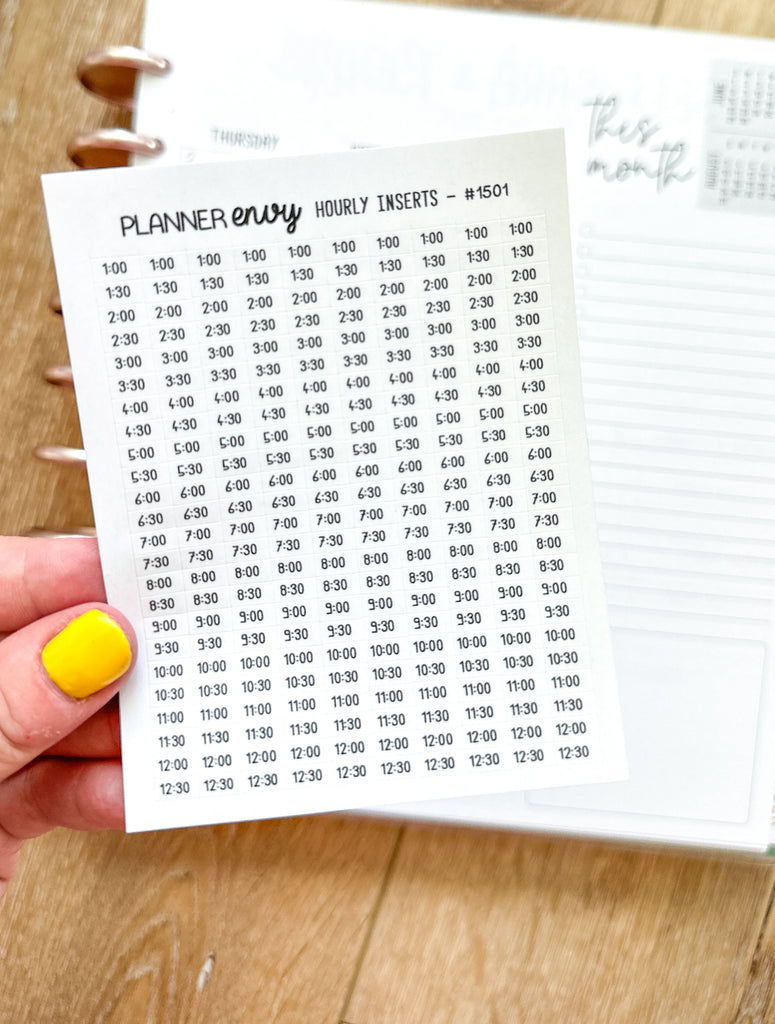 THURSDAY
this
month
JUNE
AUGUST
PLANNER envy HOURLY INSERTS - #1501
1:00 1:00 1:00 1:00 1:00 1:00 1:00 1:00 1:00 1:00
1:30 1:30 1:30 1:30 1:30 1:30 1:30 1:30 1:30 1:30
2:00 2:00 2:00 2:00 2:00 2:00 2:00 2:00 2:00 2:00
2:30 2:30 2:30 2:30 2:30 2:30 2:30 2:30 2:30 2:30
3:00 3:00 3:00 3:00 3:00 3:00 3:00 3:00 3:00 3:00
3:30 3:30 3:30 3:30 3:30 3:30 3:30 3:30 3:30 3:30
4:00 4:00 4:00 4:00 4:00 4:00 4:00 4:00 4:00 4:00
4:30 4:30 4:30 4:30 4:30 4:30 4:30 4:30 4:30 4:30
5:00 5:00 5:00 5:00 5:00 5:00 5:00 5:00 5:00 5:00
5:30 5:30 5:30 5:30 5:30 5:30 5:30 5:30 5:30 5:30
6:00 6:00 6:00 6:00 6:00 6:00 6:00 6:00 6:00 6:00
6:30 6:30 6:30 6:30 6:30 6:30 6:30 6:30 6:30 6:30
7:00 7:00 7:00 7:00 7:00 7:00 7:00 7:00 7:00 7:00
7:30 7:30 7:30 7:30 7:30 7:30 7:30 7:30 7:30 7:30
8:00 8:00 8:00 8:00 8:00 8:00 8:00 8:00 8:00 8:00
8:30 8:30 8:30 8:30 8:30 8:30 8:30 8:30 8:30 8:30
9:00 9:00 9:00 9:00 9:00 9:00 9:00 9:00 9:00 9:00
9:30 9:30 9:30 9:30 9:30 9:30 9:30 9:30 9:30 9:30
10:00 10:00 10:00 10:00 10:00 10:00 10:00 10:00 10:00 10:00
10:30 10:30 10:30 10:30 10:30 10:30 10:30 10:30 10:30 10:30
11:00 11:00 11:00 11:00 11:00 11:00 11:00 11:00 11:00 11:00
11:30 11:30 11:30 11:30 11:30 11:30 11:30 11:30 11:30 11:30
12:00 12:00 12:00 12:00 12:00 12:00 12:00 12:00 12:00 12:00
12:30 12:30 12:30 12:30 12:30 12:30 12:30 12:30 12:30 12:30